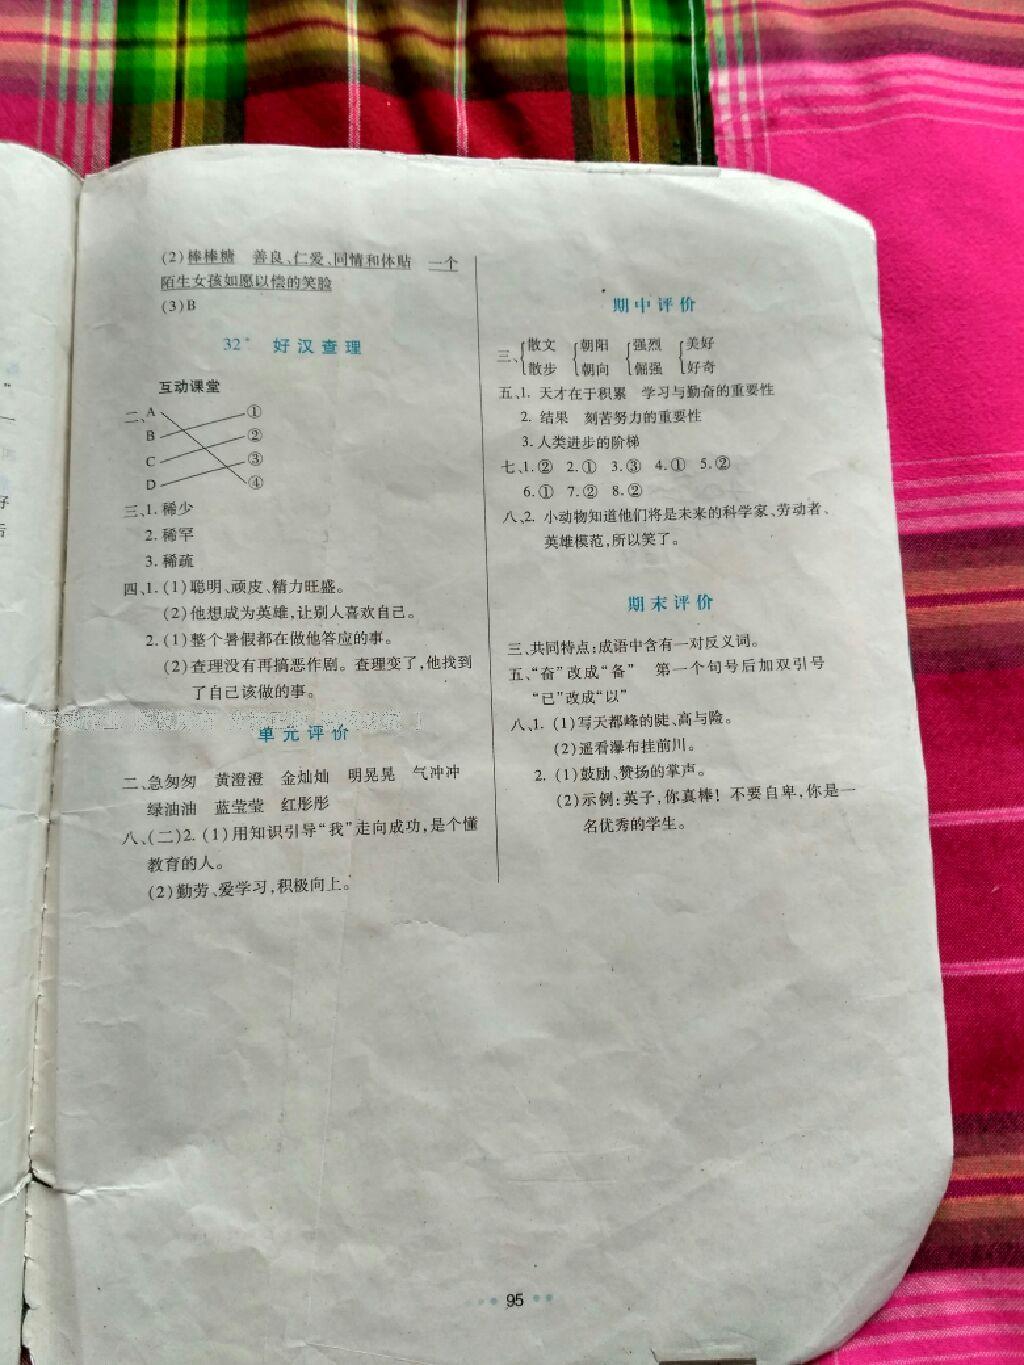 (2)棒棒糖 善良、仁爱、同情和体贴 一个
陌生女孩如愿以偿的笑脸
(3)B
32* 好汉查理
互动课堂
二、A ①
B ②
C ③
D ④
三、1.稀少
2.稀罕
3.稀疏
四、1.(1)聪明、顽皮、精力旺盛。
(2)他想成为英雄,让别人喜欢自己。
2.(1)整个暑假都在做他答应的事。
(2)查理没有再搞恶作剧。查理变了,他找到
了自己该做的事。
单元评价
二、急匆匆 黄澄澄 金灿灿 明晃晃 气冲冲
绿油油 蓝莹莹 红彤彤
八、(二)2.(1)用知识引导“我”走向成功,是个懂
教育的人。
(2)勤劳、爱学习,积极向上。
期中评价
三、散文 朝阳 强烈 美好
散步 朝向 倔强 好奇
五、1. 天才在于积累 学习与勤奋的重要性
2. 结果 刻苦努力的重要性
3.人类进步的阶梯
七、1.② 2.① 3.③ 4.① 5.②
6.① 7.② 8.②
八、2. 小动物知道他们将是未来的科学家、劳动者、
英雄模范,所以笑了。
期末评价
三、共同特点:成语中含有一对反义词。
五、“奋”改成“备” 第一个句号后加双引号
“已”改成“以”
八、1.(1)写天都峰的陡、高与险。
(2)遥看瀑布挂前川。
2.(1)鼓励、赞扬的掌声。
(2)示例:英子,你真棒!不要自卑,你是一
名优秀的学生。
95